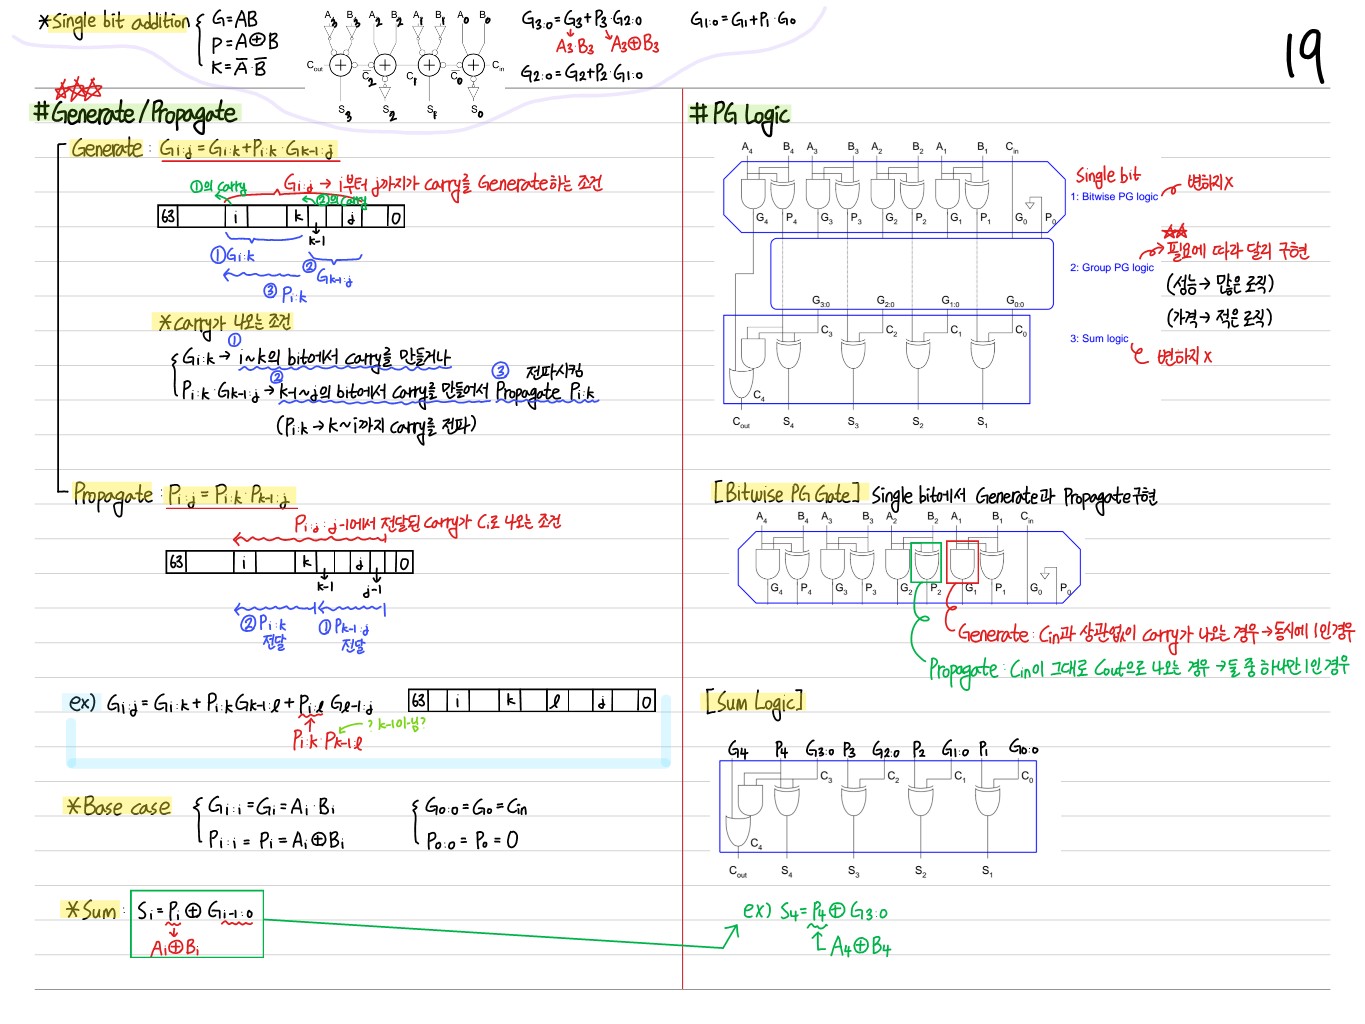 *Single bit addition { G=AB
P=A⊕B
K=A̅·B̅
A₃ B₃ A₂ B₂ A₁ B₁ A₀ B₀
Cout C̅₂ C₁ C̅₀ Cin
S₃ S₂ S₁ S₀
G3:0=G3+P3·G2:0
A3·B3 A3⊕B3
G2:0=G2+P2·G1:0
G1:0=G1+P1·G0
19
#Generate/Propagate
Generate : Gi:j=Gi:k+Pi:k·Gk-1:j
Gi:j → i부터 j까지가 carry를 Generate하는 조건
①의 carry
②의 carry
63 i k j 0
k-1
①Gi:k
② Gk-1:j
③ Pi:k
*Carry가 나오는 조건
①
{ Gi:k → i~k의 bit에서 carry를 만들거나
② ③ 전파시킴
Pi:k·Gk-1:j → k-1~j의 bit에서 carry를 만들어서 Propagate Pi:k
(Pi:k → k~i까지 carry를 전파)
Propagate : Pi:j=Pi:k·Pk-1:j
Pi:j : j-1에서 전달된 carry가 Ci로 나오는 조건
63 i k j 0
k-1 j-1
②Pi:k ①Pk-1:j
전달 전달
ex) Gi:j=Gi:k+Pi:kGk-1:l+Pi:l Gl-1:j
63 i k l j 0
? k-1아님?
Pi:k Pk-1:l
*Base case { Gi:i=Gi=Ai·Bi
Pi:i=Pi=Ai⊕Bi
{ G0:0=G0=Cin
P0:0=P0=0
*Sum : Si=Pi⊕Gi-1:0
Ai⊕Bi
#PG Logic
A4 B4 A3 B3 A2 B2 A1 B1 Cin
Single bit
1: Bitwise PG logic
변하지X
G4 P4 G3 P3 G2 P2 G1 P1 G0 P0
2: Group PG logic
필요에 따라 달리 구현
(성능→많은 로직)
(가격→적은 로직)
G3:0 G2:0 G1:0 G0:0
C3 C2 C1 C0
3: Sum logic
변하지X
C4
Cout S4 S3 S2 S1
[Bitwise PG Gate] Single bit에서 Generate과 Propagate구현
A4 B4 A3 B3 A2 B2 A1 B1 Cin
G4 P4 G3 P3 G2 P2 G1 P1 G0 P0
Generate : Cin과 상관없이 carry가 나오는 경우→동시에 1인경우
Propagate : Cin이 그대로 Cout으로 나오는 경우→둘 중 하나만 1인 경우
[Sum Logic]
G4 P4 G3:0 P3 G2:0 P2 G1:0 P1 G0:0
C3 C2 C1 C0
C4
Cout S4 S3 S2 S1
ex) S4=P4⊕G3:0
A4⊕B4